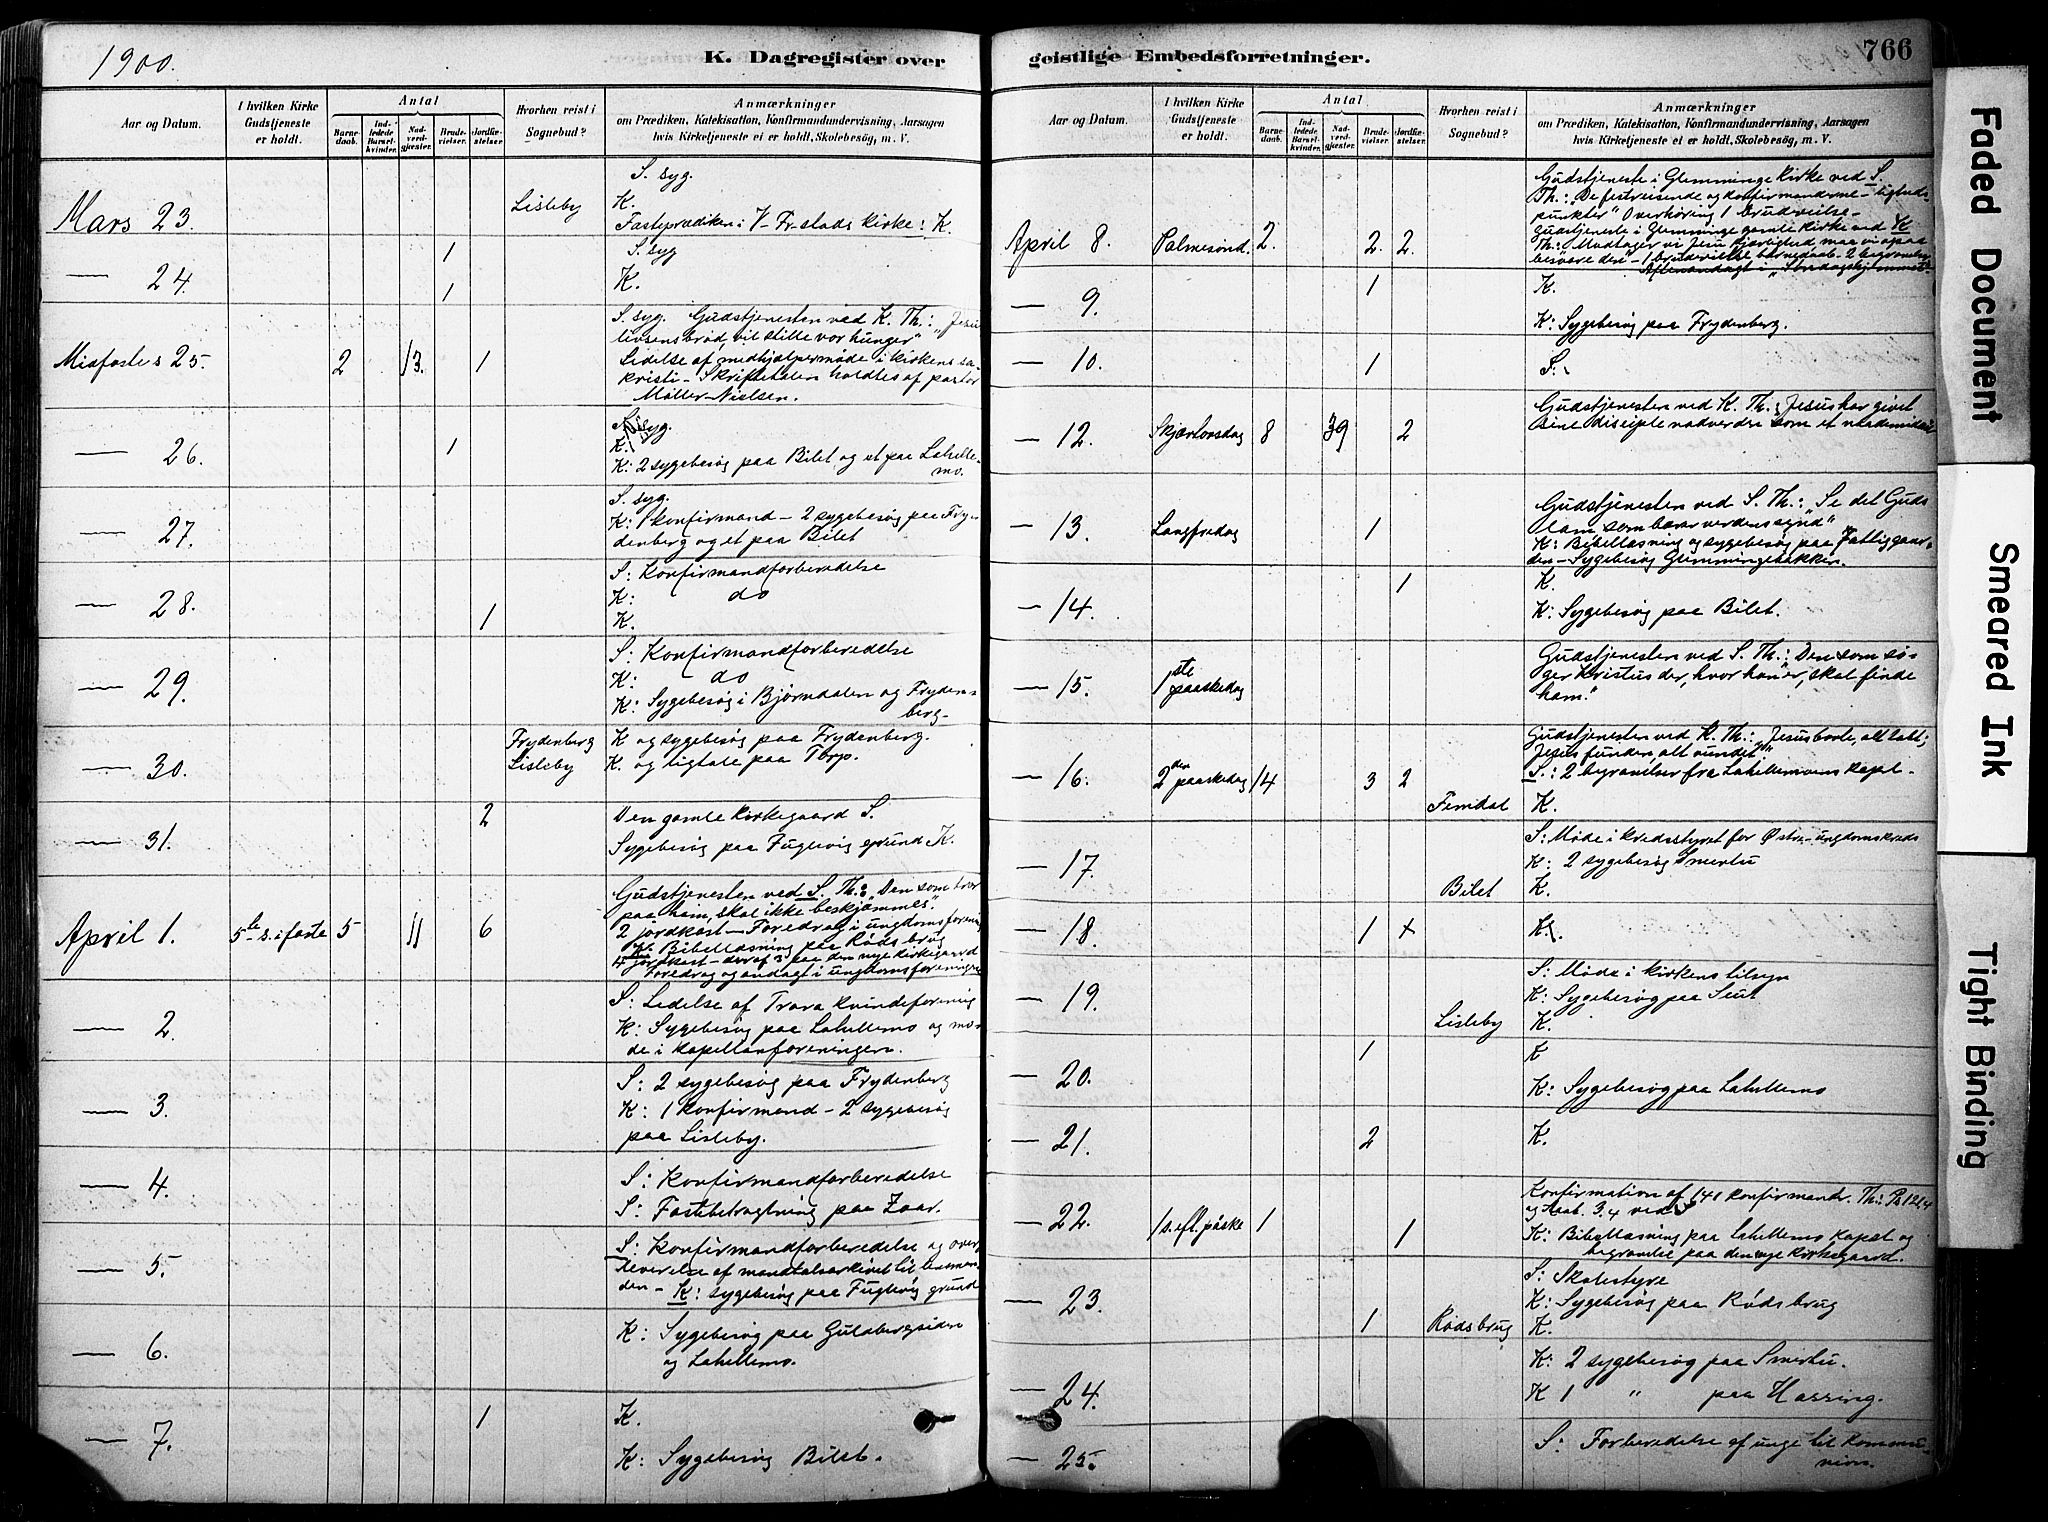 1900.
K. Dagregister over
Aar og Datum.
I hvilken Kirke Gudstjeneste er holdt.
Antal
Barnedaab.
Indledede Barselkvinder.
Nadverdgjæster.
Brudevielser.
Jordfæstelser.
Hvorhen reist i Sognebud?
Anmærkninger
om Prædiken, Katekisation, Konfirmandundervisning, Aarsagen
hvis Kirketjeneste ei er holdt, Skolebesøg, m. V.
S. syg.
Mars 23. Lisleby K.
Fasteprædiken i V-Fr.stads kirke: K.
1 S. syg
— 24. 1 K.
S. syg. Gudstjenesten ved K. Th.: „Jesus
livsens brød, vil stille vor hunger"
Midfastes 25. 2 13. 1 Ledelse af medhjælpermøde i kirkens sa-
kristi - Skriftetalen holdtes af pastor
Møller-Nielsen.
S. syg.
— 26. 1 K.
K: 2 sygebesøg paa Bilet og et paa Lahelle-
mo.
S. syg.
— 27. K: 1 konfirmand - 2 sygebesøg paa Fry-
denberg og et paa Bilet
S: Konfirmandforberedelse
— 28. K: do
1 K.
S: Konfirmandforberedelse
— 29. K: do
K: Sygebesøg i Bjørndalen og Frydens-
berg-
Frydenberg K og sygebesøg paa Frydenberg.
— 30. Lisleby K. og ligtale paa Torp.
2 Den gamle kirkegaard S.
— 31. Sygebesøg paa Fuglevig grund K.
Gudstjenesten ved S. Th.: „Den som tror
paa ham, skal ikke beskjæmmes."
April 1. 5te s. i faste 5 11 6 2 jordkast - Foredrag i ungdomsforening
K. Bibellæsning paa Røds brug
4 jordkast - deraf 3 paa den nye kirkegaard
Foredrag og andagt i ungdomsforeningen
S: Ledelse af Trara kvindeforening
— 2. K: Sygebesøg paa Lahellemo og mø-
de i kapellanforeningen.
S: 2 sygebesøg paa Frydenberg
— 3. K: 1 konfirmand - 2 sygebesøg
paa Lisleby.
— 4. S: Konfirmandforberedelse
S: Fastebetragtning paa Zoar.
S: Konfirmandforberedelse og over-
— 5. leverelse af mandtalsarkivet til lensman-
den - K: sygebesøg paa Fuglevig grund
— 6. K: Sygebesøg paa Guldbergsiden
og Lahellemo.
1 K.
— 7. K: Sygebesøg Bilet.
geistlige Embedsforretninger.
766
Aar og Datum.
I hvilken Kirke Gudstjeneste er holdt.
Antal
Barnedaab.
Indledede Barselkvinder.
Nadverdgjæster.
Brudevielser.
Jordfæstelser.
Hvorhen reist i Sognebud?
Anmærkninger
om Prædiken, Katekisation, Konfirmandundervisning, Aarsagen
hvis Kirketjeneste ei er holdt, Skolebesøg, m. V.
Gudstjeneste i Glemminge kirke ved S.
Th.: „De festreisende og konfirmanderne - ligheds-
punkter" Overhøring 1 brudevielse -
April 8. Palmesønd. 2. 2. 2. gudstjeneste i Glemminge gamle kirke ved K
Th.: Modtager vi Jesu kjærlighed, maa vi ogsaa
besvare den" - 1 brudevielse barnedaab - 2 begravelser
Aftenandagt i „Søndagshjemmet"
— 9. 1 K.
K: Sygebesøg paa Frydenberg.
— 10. 1 S:
Gudstjenesten ved K. Th.: Jesus har givet
— 12. Skjærtorsdag 8 39 2 sine disciple nadverden som et naademiddel
Gudstjenesten ved S. Th.: „Se det Guds
— 13. Langfredag 1 lam som bærer verdens synd"
K: Bibellæsning og sygebesøg paa Fattiggaar-
den - Sygebesøg Glemmingebakken.
1 K.
— 14. K: Sygebesøg paa Bilet.
Gudstjenesten ved S. Th.: Den som sø-
— 15. 1ste paaskedag ger Kristus der, hvor han er, skal finde
ham."
Gudstjenesten ved K. Th.: „Jesus borte, alt tabt;
Jesus funden, alt vundet"
— 16. 2den paaskedag 14 3 2 S: 2 begravelser fra Lahellemoens kapel -
Femdal K.
S: Møde i kredsstyret for Østre ungdomskreds
— 17. K: 2 sygebesøg Smertu
Bilet K.
— 18. 1 K.
S: Møde i kirkens tilsyn
— 19. K: Sygebesøg paa Seut
Lisleby K.
1 K
— 20. K: Sygebesøg paa Lahellemo
— 21. 2 K.
Konfirmation af 141 konfirmander. Th.: Ps 121,4
og Aab. 3.4 ved S
— 22. 1 s. eft. påske 1 1 K: Bibellæsning paa Lahellemo kapel og
begravelse paa den nye kirkegaard.
S: Skolestyre
— 23. K: Sygebesøg paa Rødsbrug
1 Rødsbrug K.
K: 2 sygebesøg paa Smertu.
— 24. K 1 " paa Hassing.
— 25. S: Forberedelse af unge til kommu-
nion.
Faded Document
Smeared Ink
Tight Binding